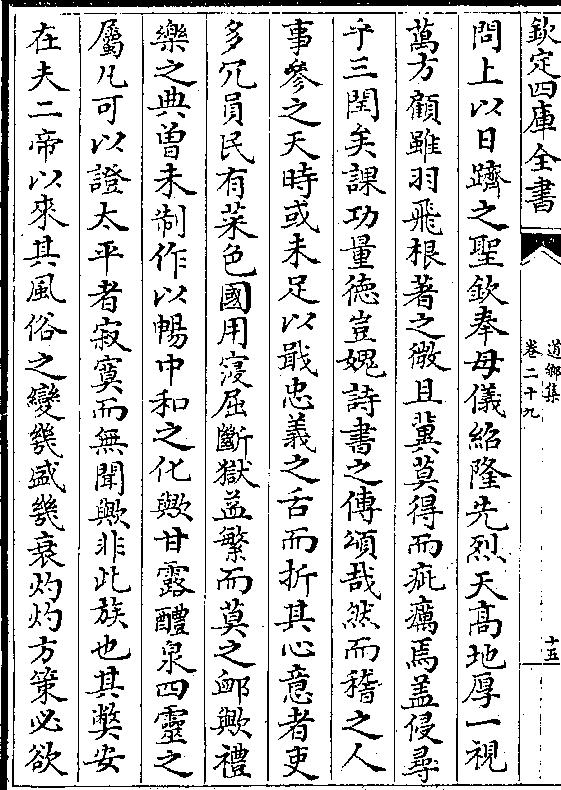 欽定四庫全書
道鄉集
卷二十九
十五
問上以日躋之聖欽奉母儀紹隆先烈天高地厚一視
萬方顧雖羽飛根著之微且冀莫得而疵癘焉盖侵尋
乎三閏矣課功量德豈媿詩書之傳頌哉然而稽之人
事參之天時或未足以戢忠義之舌而折其心意者吏
多冗員民有菜色國用寖屈斷獄益繁而莫之卹歟禮
樂之典曾未制作以暢中和之化歟甘露醴泉四靈之
屬凡可以證太平者寂寞而無聞歟非此族也其弊安
在夫二帝以來其風俗之變幾盛幾衰灼灼方策必欲